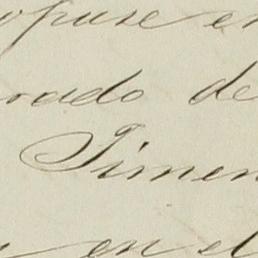 opuse en
rado de
Jimen
en el